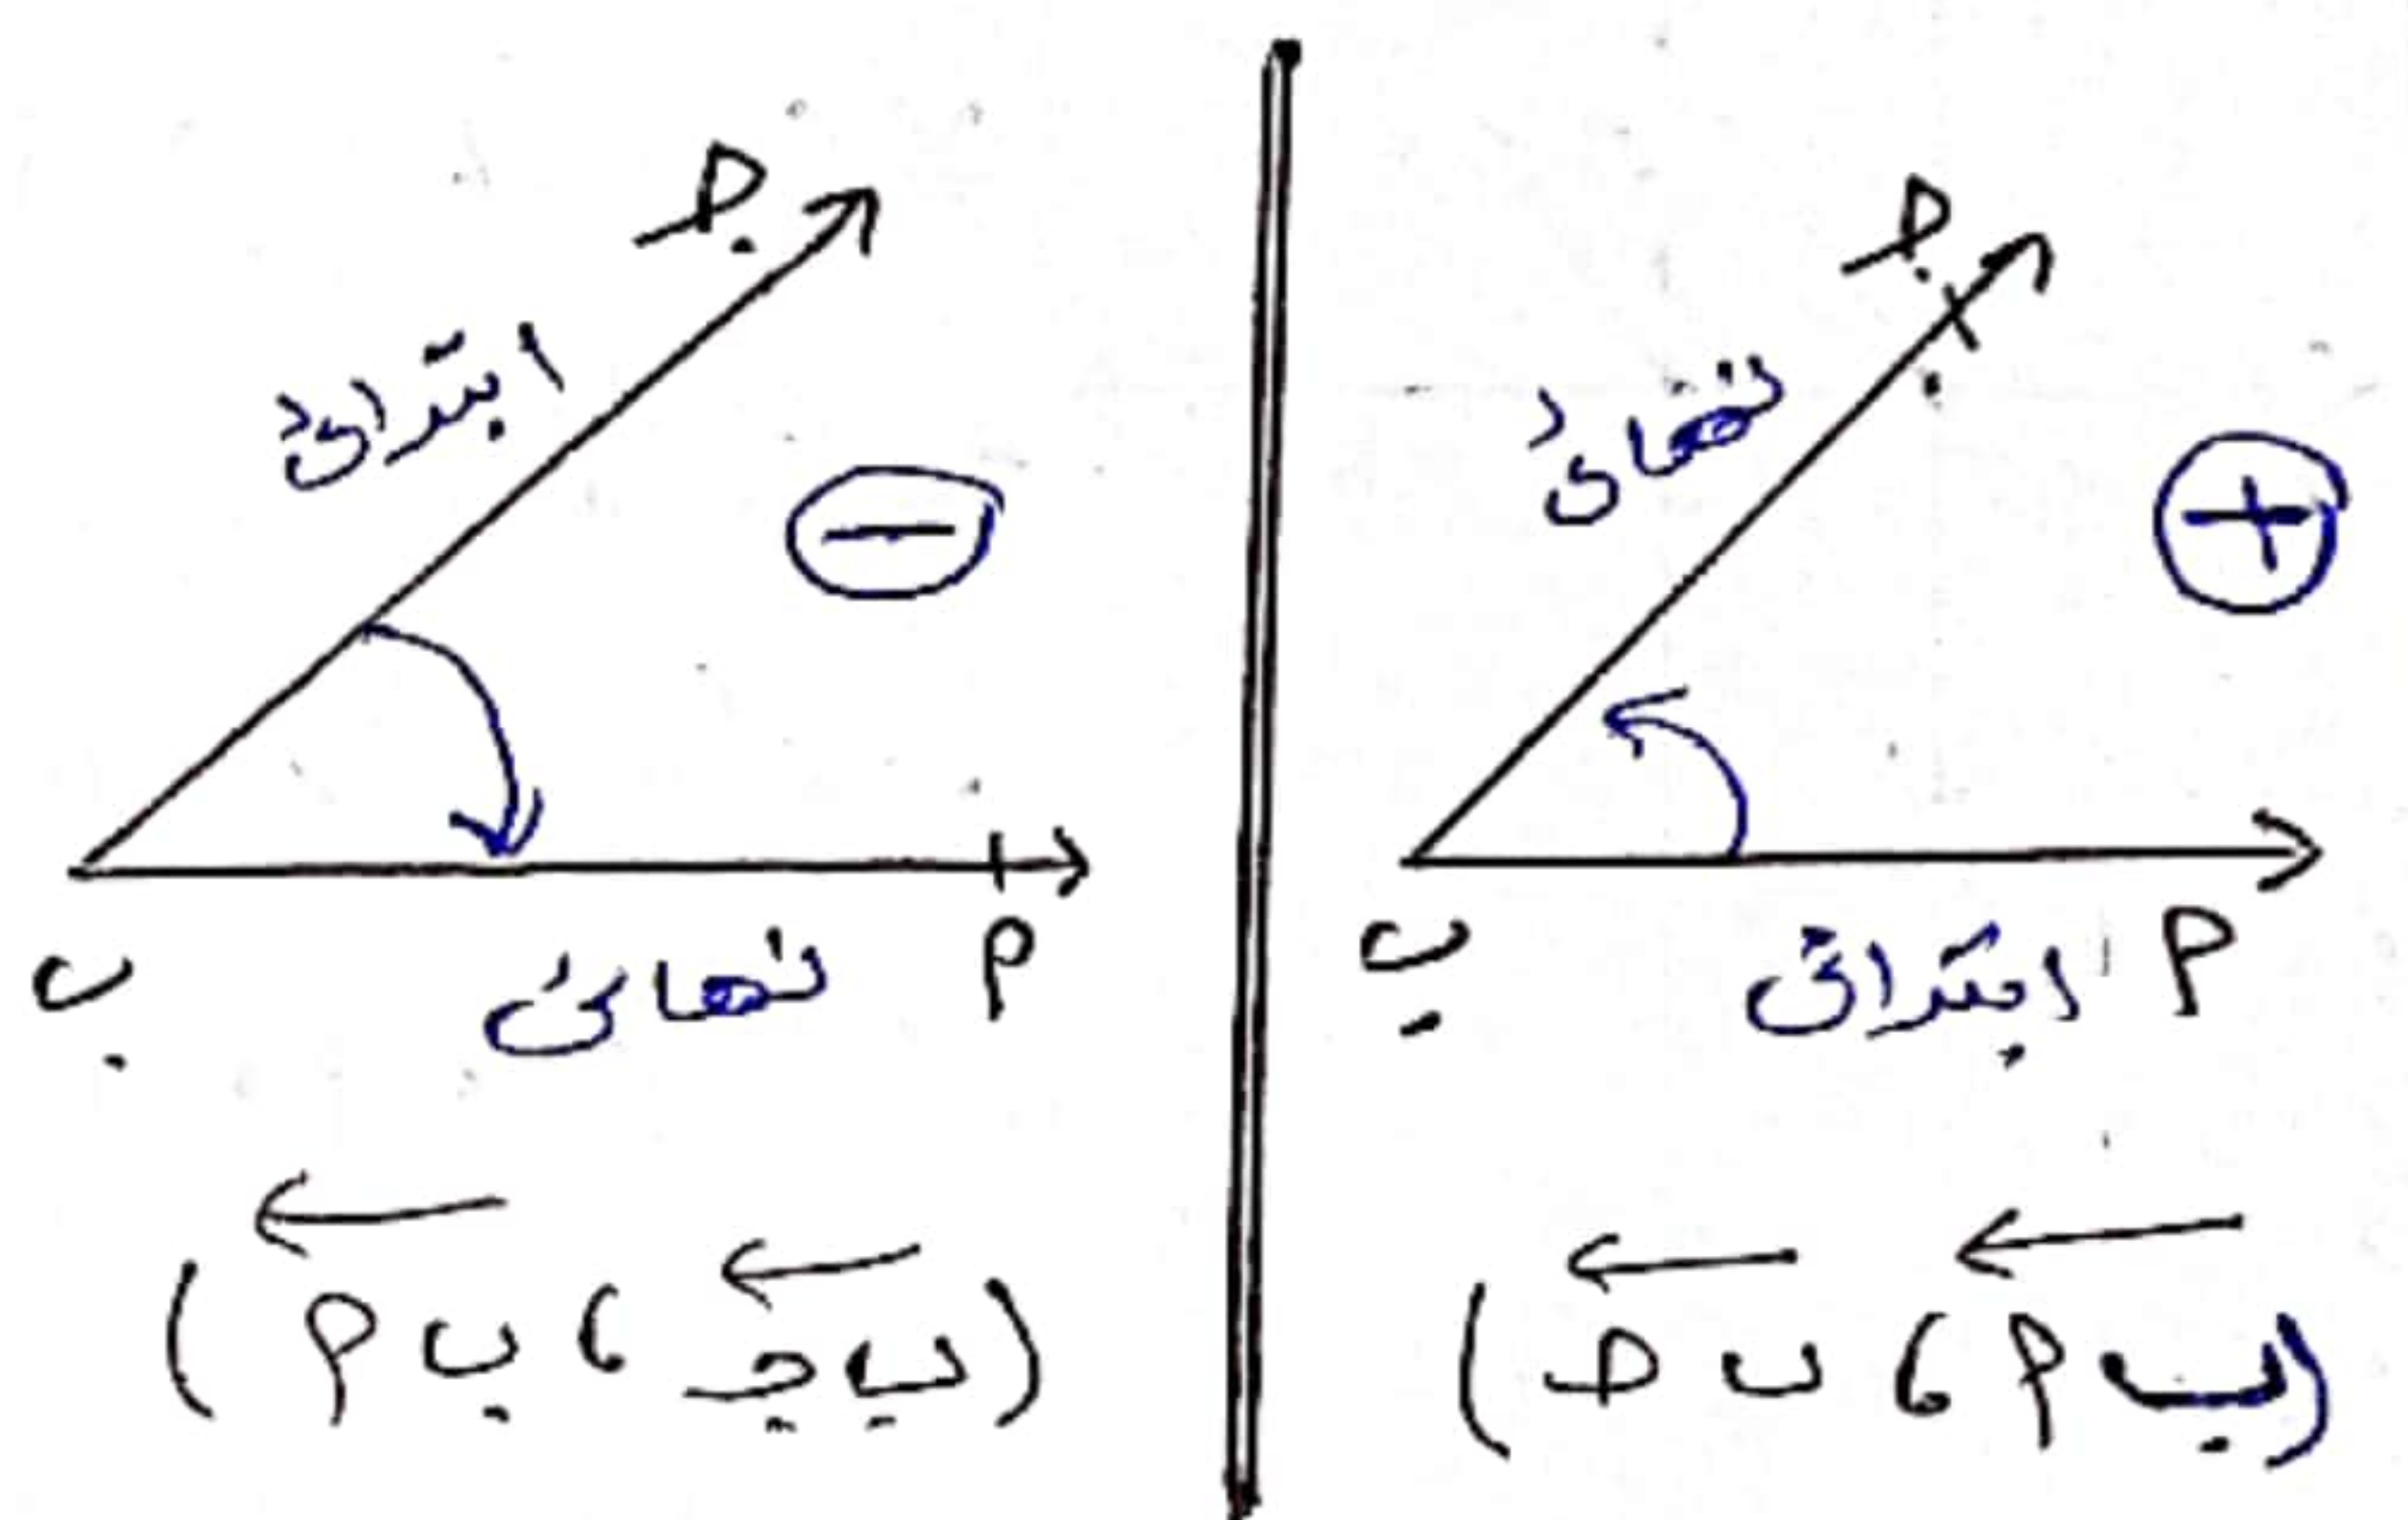 جـ
نهائى
+
ب
ابتدائى
م
(ب م ، ب جـ)
جـ
ابتدائى
−
ب
نهائى
م
(ب جـ ، ب م)